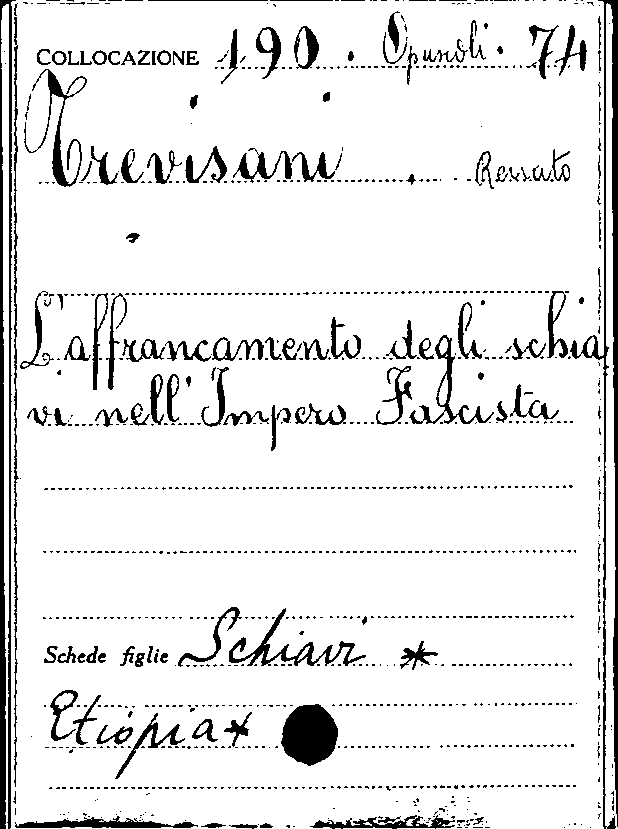 COLLOCAZIONE 190. Opuscoli. 74
Trevisani. Renato
L'affrancamento degli schia
vi nell'Impero Fascista
Schede figlie Schiavi *
Etiopia*